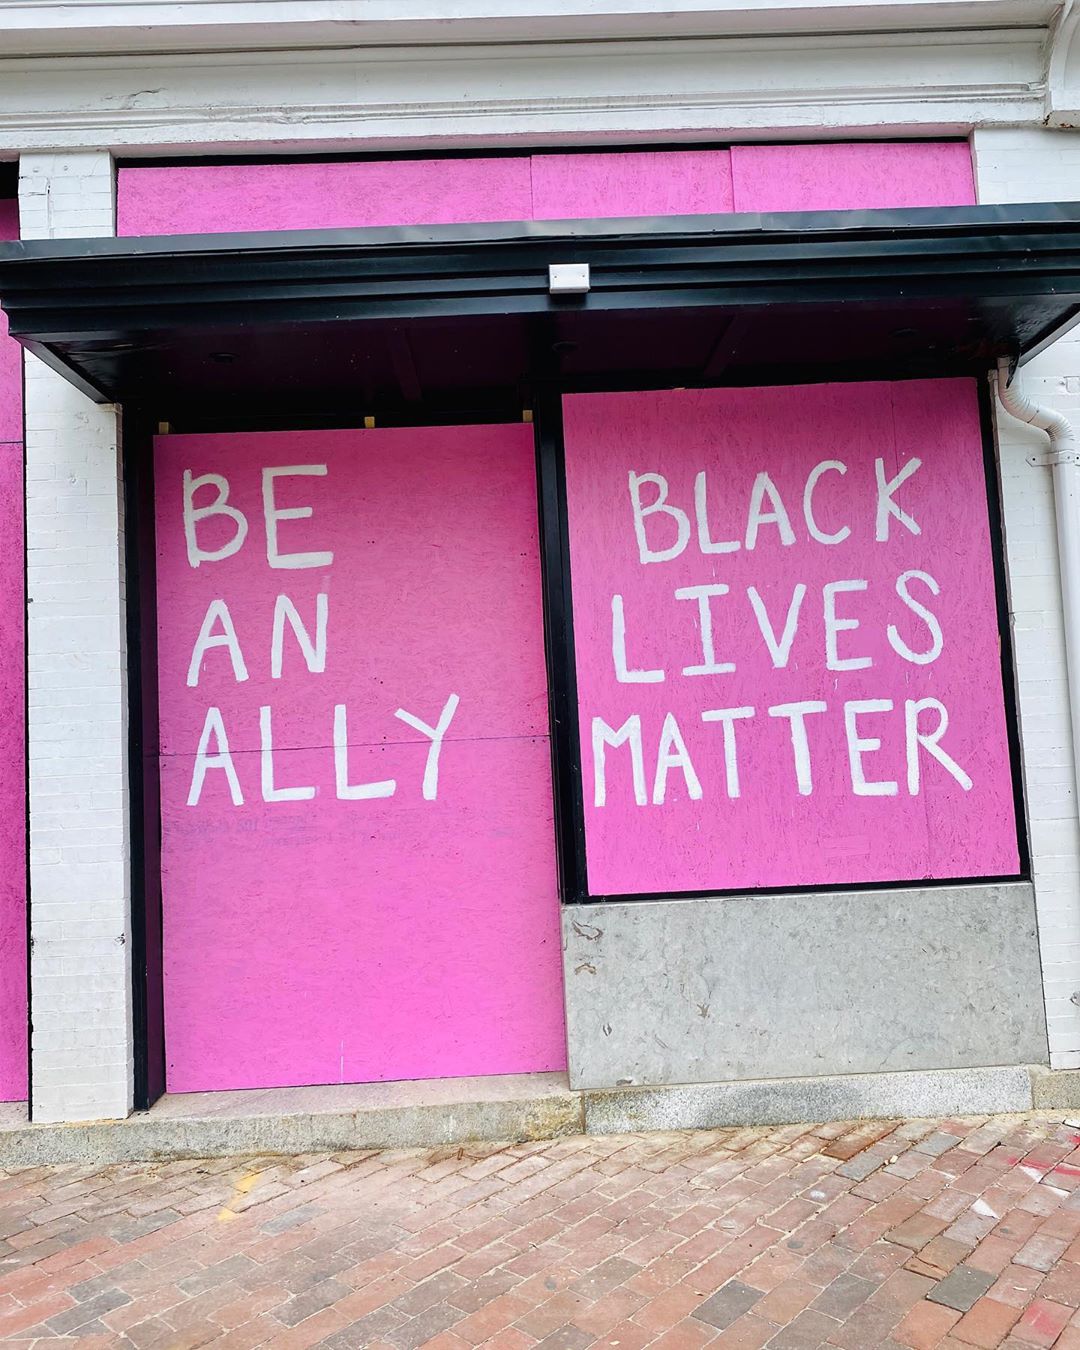 BE
AN
ALLY
BLACK
LIVES
MATTER